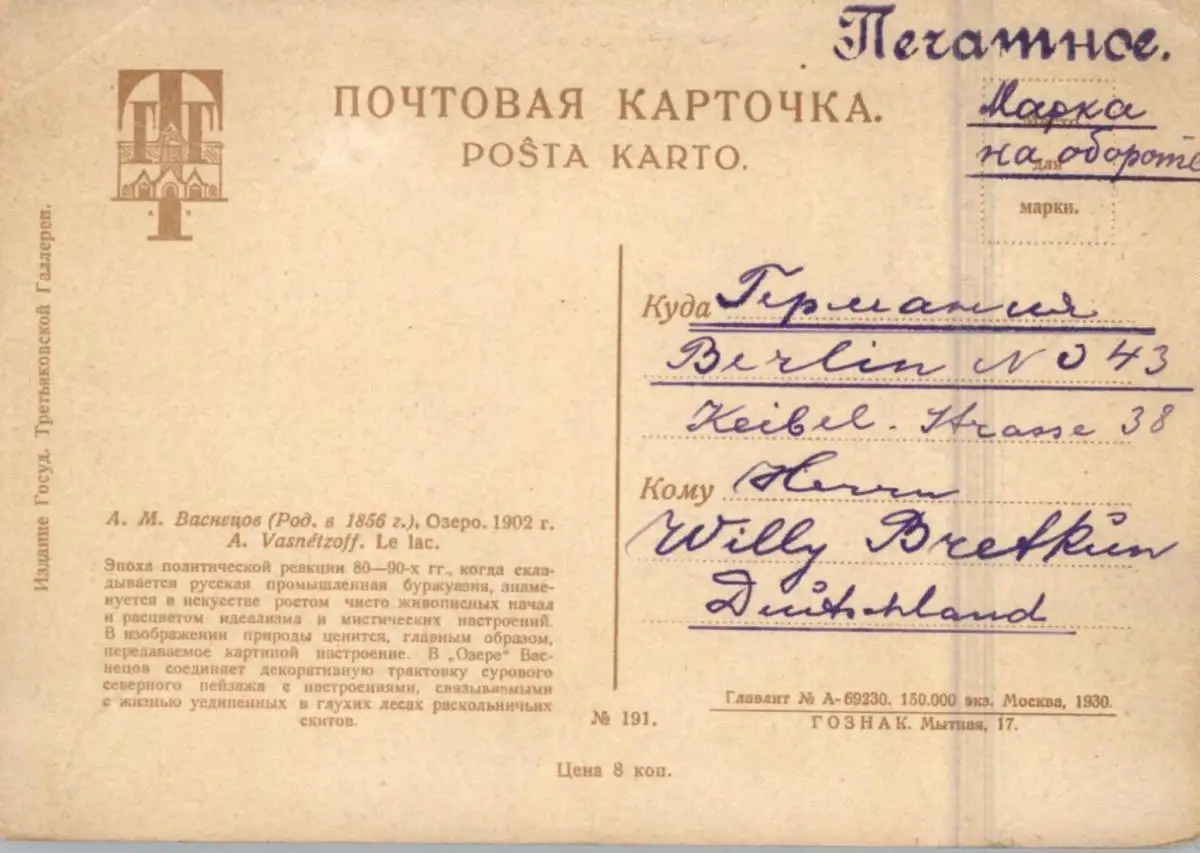 Печатное.
ПОЧТОВАЯ КАРТОЧКА.
POŜTA KARTO.
Марка
на обороте
для
марки.
Издание Госуд. Третьяковской Галлереи.
Куда Германия
Berlin NO 43
Keibel-Strasse 38
Кому Herrn
Willy Bretkün
Deutschland
А. М. Васнецов (Род. в 1856 г.). Озеро. 1902 г.
A. Vasnétzoff. Le lac.
Эпоха политической реакции 80—90-х гг., когда скла-
дывается русская промышленная буржуазия, знаме-
нуется в искусстве ростом чисто живописных начал
и расцветом идеализма и мистических настроений.
В изображении природы ценится, главным образом,
передаваемое картиной настроение. В „Озере" Вас-
нецов соединяет декоративную трактовку сурового
северного пейзажа с настроениями, связываемыми
с жизнью уединенных в глухих лесах раскольничьих
скитов.
№ 191.
Главлит № А-69230. 150.000 экз. Москва, 1930.
ГОЗНАК. Мытная, 17.
Цена 8 коп.